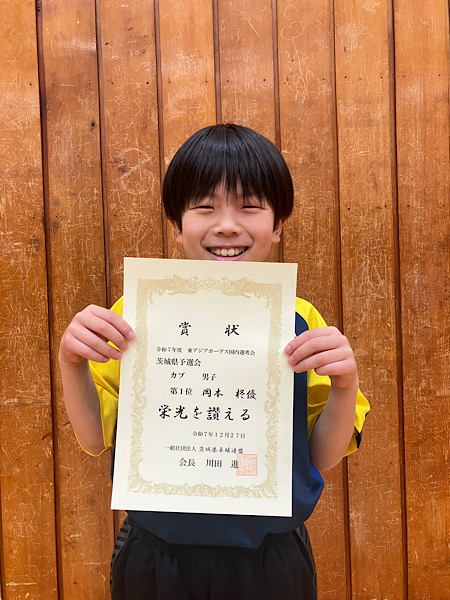 賞状
令和7年度 東アジアホープス国内選考会
茨城県予選会
カブ 男子
第1位 岡本 柊優
栄光を讃える
令和7年12月27日
一般社団法人 茨城県卓球連盟
会長 川田 進